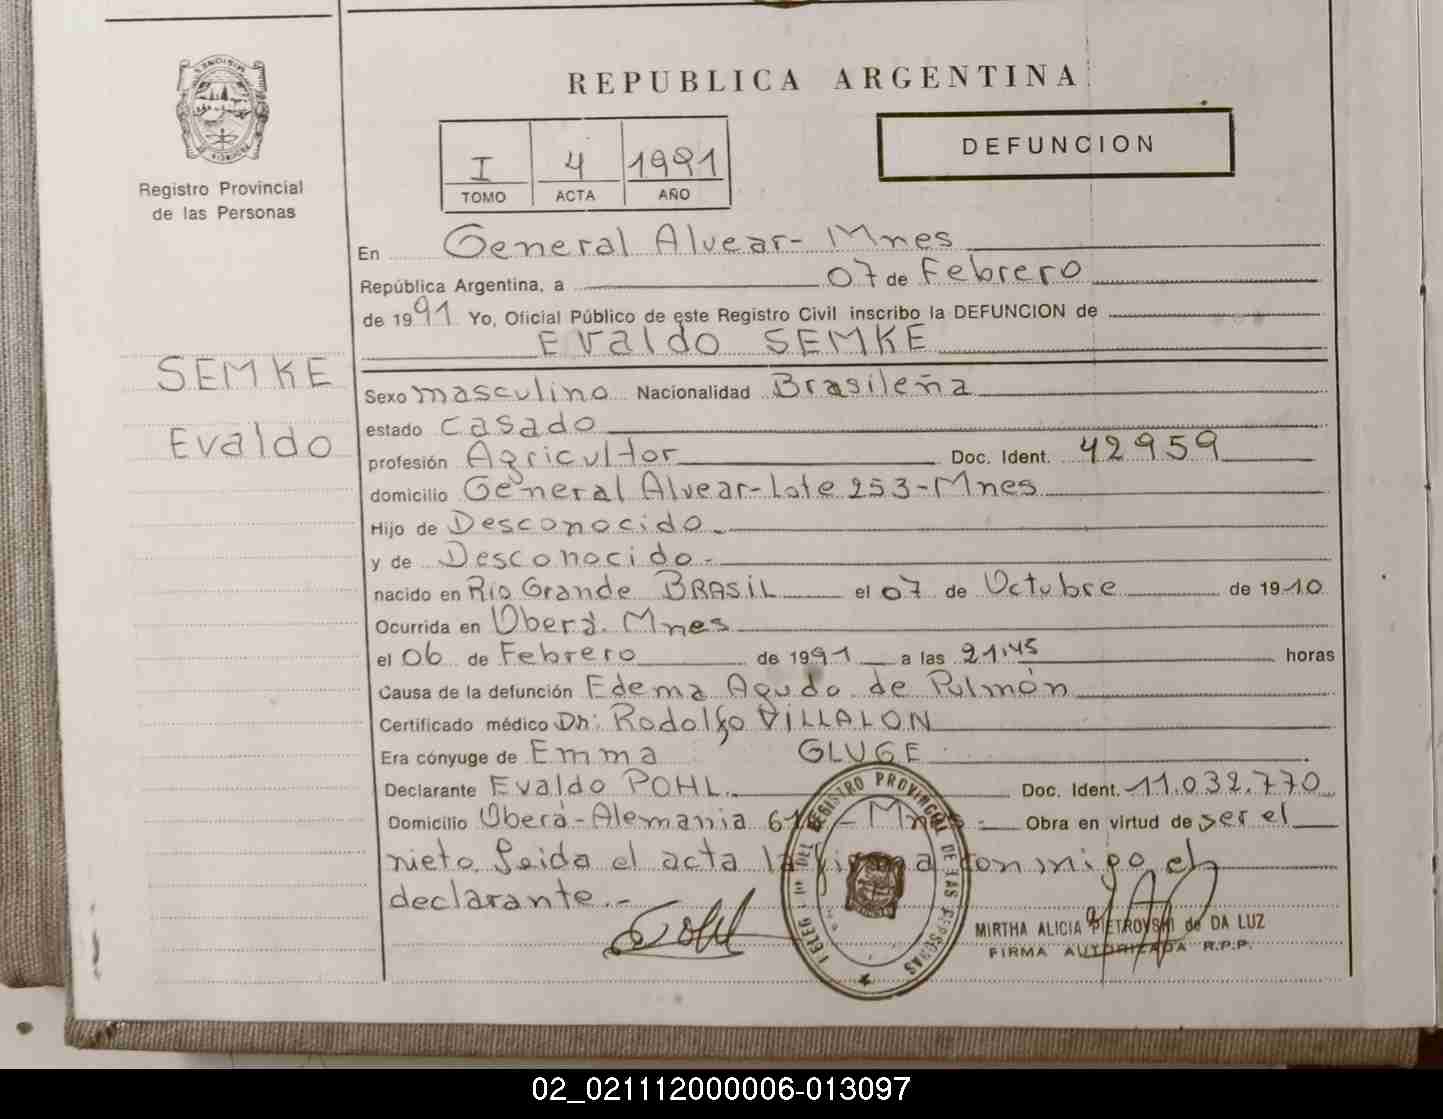 REPUBLICA ARGENTINA
Registro Provincial
de las Personas
I 4 1991
TOMO ACTA AÑO
DEFUNCION
En General Alvear- Mnes
República Argentina, a 07 de Febrero
de 1991 Yo, Oficial Público de este Registro Civil inscribo la DEFUNCION de
Evaldo SEMKE
SEMKE
Evaldo
Sexo masculino Nacionalidad Brasileña
estado casado
profesión Agricultor Doc. Ident. 42959
domicilio General Alvear-Lote 253-Mnes
Hijo de Desconocido
y de Desconocido.
nacido en Rio Grande BRASIL el 07 de Octubre de 1910
Ocurrida en Oberá. Mnes
el 06 de Febrero de 1991 a las 21,45 horas
Causa de la defunción Edema Agudo de Pulmón
Certificado médico Dr: Rodolfo VILLALON
Era cónyuge de Emma GLUGE
Declarante Evaldo POHL. Doc. Ident. 11.032.770
Domicilio Oberá-Alemania - Mnes Obra en virtud de ser el
nieto. Leida el acta la firma conmigo el
declarante.-
REGISTRO PROVINCIAL DE LAS PERSONAS
MIRTHA ALICIA PIETROVSKI de DA LUZ
FIRMA AUTORIZADA R.P.P.
02_021112000006-013097